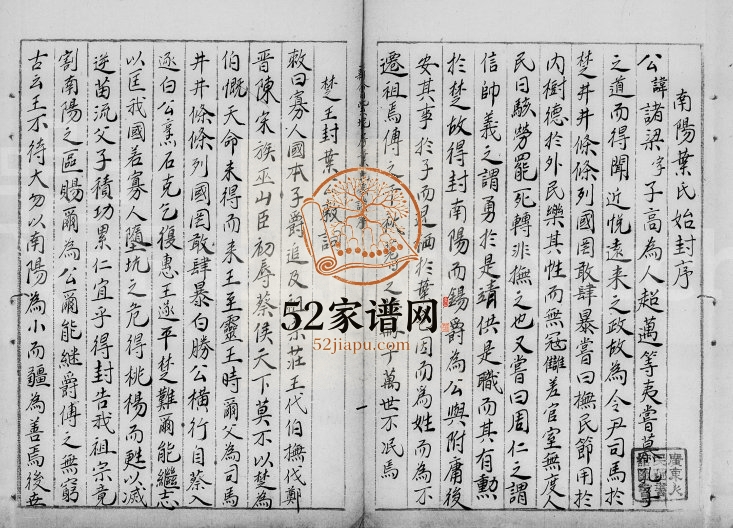 南陽葉氏始封序
公諱諸梁字子高為人超萬等夷嘗慕孔子
之道而得聞近悅遠来之政故為令尹司馬於
楚井井條條列國罔敢肆暴嘗曰撫民節用於
内樹德於外民樂其性而無冦讎差官室無度人
民日駭勞罷死轉非撫之也又嘗曰周仁之謂
信帥義之謂勇於是靖供是職而其有勳
於楚故得封南陽而錫爵為公與附庸後
安其事於子而足栖於葉因而為姓而為不
遷祖焉傳之千萬世不泯焉
楚王封葉公敕詞
敕曰寡人國本子爵追及莊王代伯撫伐鄭
晉陳宋族巫山臣初辱蔡侯天下莫不以楚為
伯慨天命未得而来王至靈王時爾父為司馬
井井條條列國罔敢肆暴白勝公橫行目蔡入
逐白公烹石克乞復惠王遂平楚難爾能繼志
以匡我國若寡人隨坑之危得桃楊而甦以滅
逆苗流父子積功累仁宜乎得封告我祖宗竟
割南陽之區賜爾為公爾能継爵傳之無窮
古云王不待大勿以南陽為小而疆為善焉後世
一
52家谱网
52jiapu.com